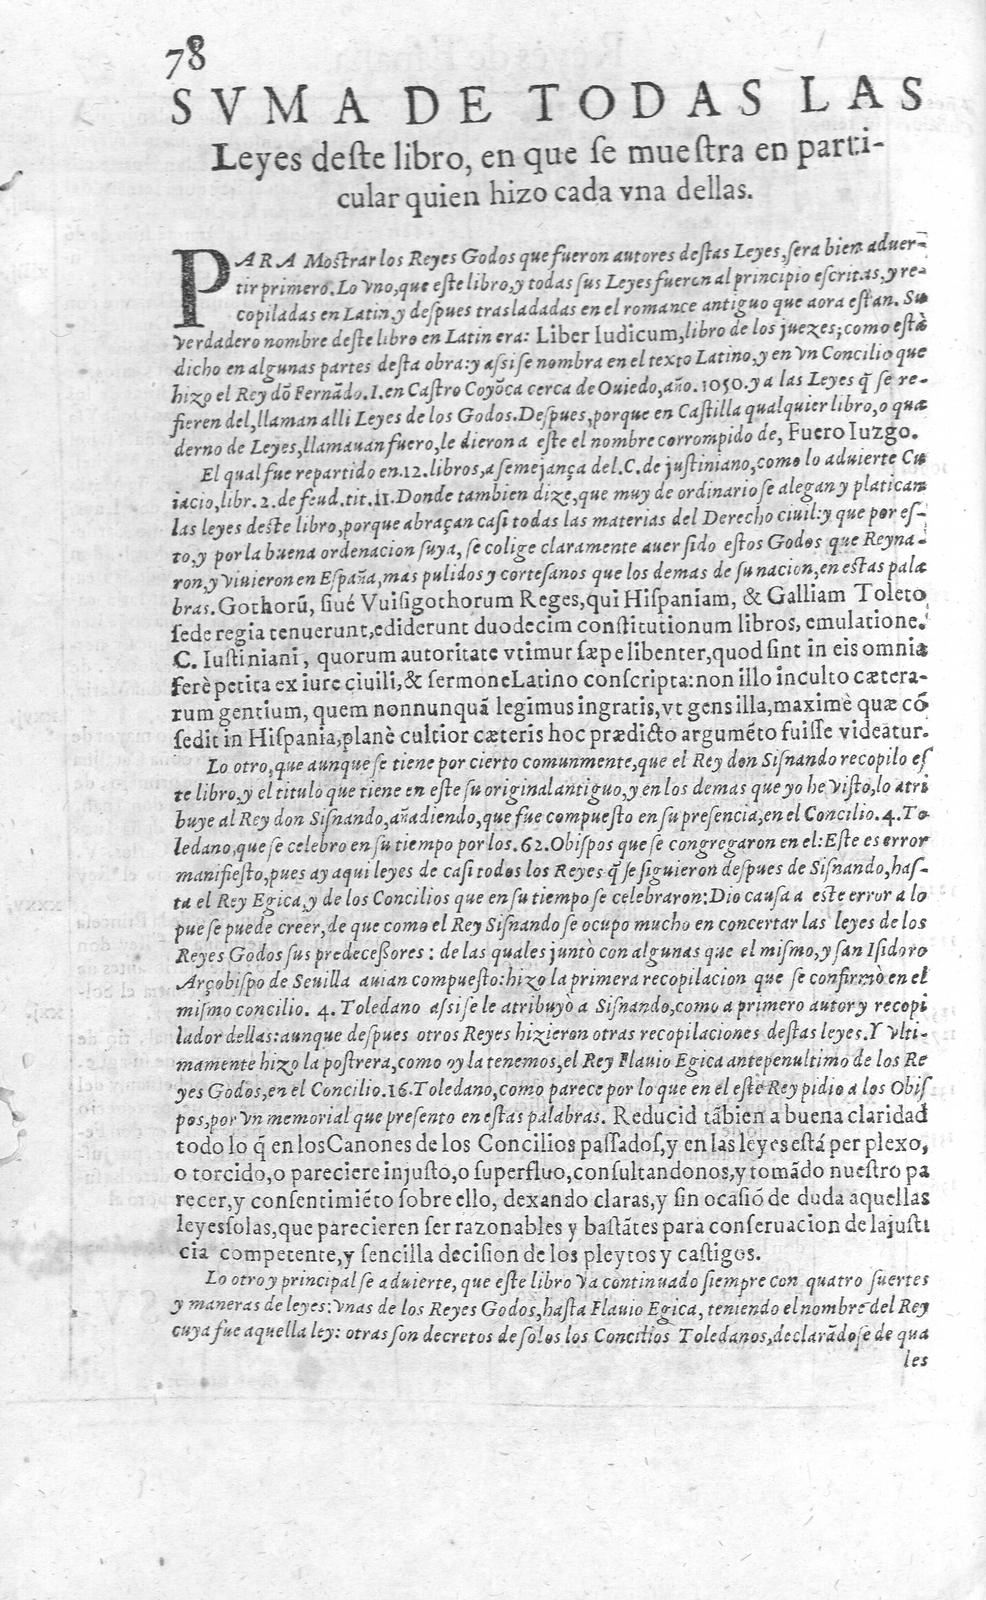 78
SVMA DE TODAS LAS
Leyes deste libro, en que se muestra en parti-
cular quien hizo cada vna dellas.
PARA Mostrar los Reyes Godos que fueron autores destas Leyes, sera bien aduer-
tir primero. Lo vno, que este libro, y todas sus Leyes fueron al principio escritas, y re-
copiladas en Latin, y despues trasladadas en el romance antiguo que aora estan. Su
verdadero nombre deste libro en Latin era: Liber Iudicum, libro de los juezes; como està
dicho en algunas partes desta obra: y assi se nombra en el texto Latino, y en vn Concilio que
hizo el Rey dõ Fernãdo. I. en Castro Coyõca cerca de Ouiedo, año. 1050. y a las Leyes q̃ se re-
fieren del, llaman alli Leyes de los Godos. Despues, porque en Castilla qualquier libro, o qua
derno de Leyes, llamauan fuero, le dieron a este el nombre corrompido de, Fuero Iuzgo.
El qual fue repartido en. 12. libros, a semejança del. C. de justiniano, como lo aduierte Cu
iacio, libr. 2. de feud. tit. 11. Donde tambien dize, que muy de ordinario se alegan y platican
las leyes deste libro, porque abraçan casi todas las materias del Derecho ciuil: y que por es-
to, y por la buena ordenacion suya, se colige claramente auer sido estos Godos que Reyna-
ron, y viuieron en España, mas pulidos y cortesanos que los demas de su nacion, en estas pala
bras. Gothorũ, siué Vuisigothorum Reges, qui Hispaniam, & Galliam Toleto
sede regia tenuerunt, ediderunt duodecim constitutionum libros, emulatione.
C. Iustiniani, quorum autoritate vtimur sæpe libenter, quod sint in eis omnia
ferè petita ex iure ciuili, & sermone Latino conscripta: non illo inculto cætera-
rum gentium, quem nonnunquã legimus ingratis, vt gens illa, maximè quæ cõ
sedit in Hispania, planè cultior cæteris hoc prædicto argumẽto fuisse videatur.
Lo otro, que aunque se tiene por cierto comunmente, que el Rey don Sisnando recopilo es
te libro, y el titulo que tiene en este su original antiguo, y en los demas que yo he visto, lo atri
buye al Rey don Sisnando, añadiendo, que fue compuesto en su presencia, en el Concilio. 4. To
ledano, que se celebro en su tiempo por los. 62. Obispos que se congregaron en el: Este es error
manifiesto, pues ay aqui leyes de casi todos los Reyes q̃ se siguieron despues de Sisnando, has-
ta el Rey Egica, y de los Concilios que en su tiempo se celebraron: Dio causa a este error a lo
que se puede creer, de que como el Rey Sisnando se ocupo mucho en concertar las leyes de los
Reyes Godos sus predecessores: de las quales juntò con algunas que el mismo, y san Isidoro
Arçobispo de Seuilla auian compuesto: hizo la primera recopilacion que se confirmò en el
mismo concilio. 4. Toledano assi se le atribuyò a Sisnando, como a primero autor y recopi
lador dellas: aunque despues otros Reyes hizieron otras recopilaciones destas leyes. Y vlti-
mamente hizo la postrera, como oy la tenemos, el Rey Flauio Egica antepenultimo de los Re
yes Godos, en el Concilio. 16. Toledano, como parece por lo que en el este Rey pidio a los Obis
pos, por vn memorial que presento en estas palabras. Reducid tãbien a buena claridad
todo lo q̃ en los Canones de los Concilios passados, y en las leyes està per plexo,
o torcido, o pareciere injusto, o superfluo, consultandonos, y tomãdo nuestro pa
recer, y consentimiẽto sobre ello, dexando claras, y sin ocasiõ de duda aquellas
leyes solas, que parecieren ser razonables y bastãtes para conseruacion de la justi
cia competente, y sencilla decision de los pleytos y castigos.
Lo otro y principal se aduierte, que este libro va continuado siempre con quatro suertes
y maneras de leyes: vnas de los Reyes Godos, hasta Flauio Egica, teniendo el nombre del Rey
cuya fue aquella ley: otras son decretos de solos los Concilios Toledanos, declarãdose de qua
les